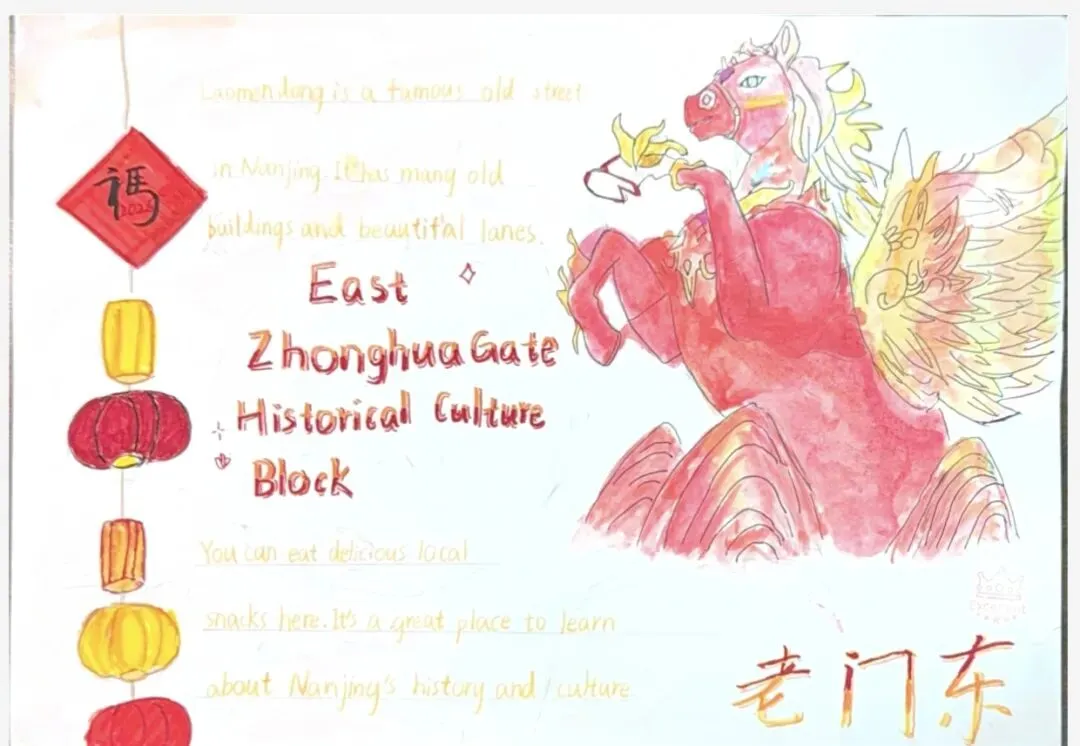 Laomendong is a famous old street
in Nanjing. It has many old
buildings and beautiful lanes.
East
Zhonghua Gate
Historical Culture
Block
You can eat delicious local
snacks here. It's a great place to learn
about Nanjing's history and culture
老门东
Excellent